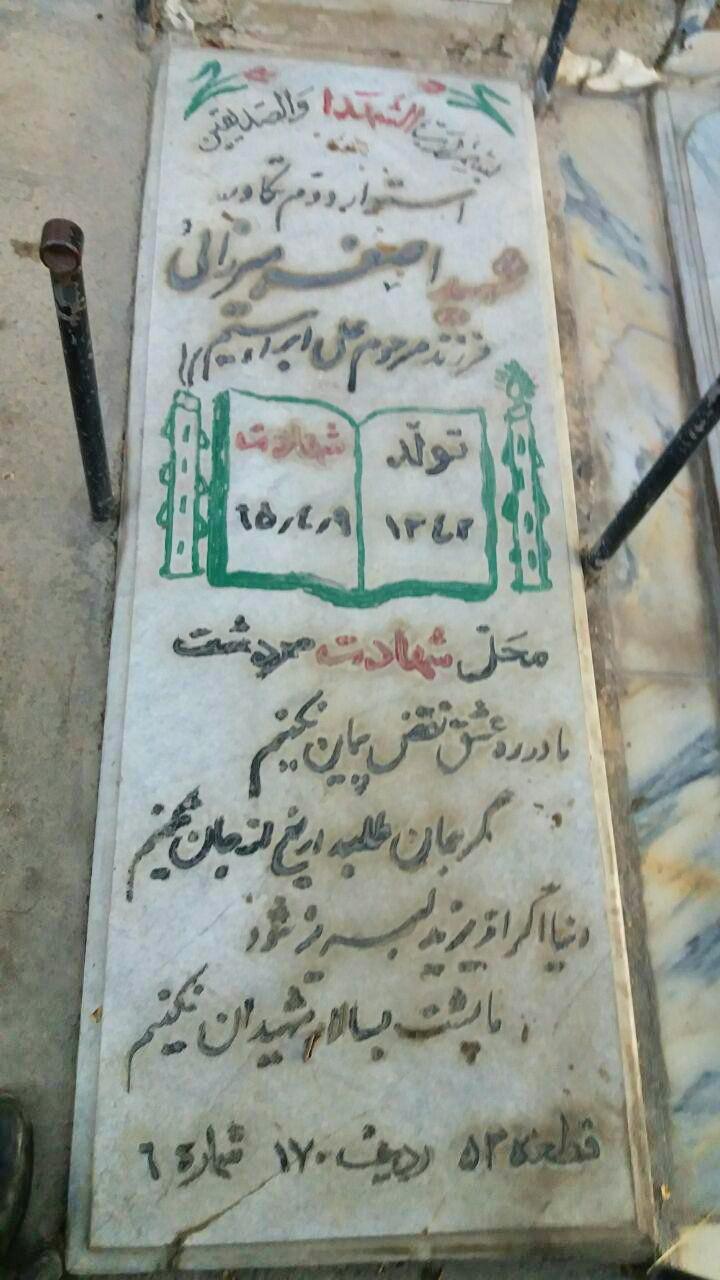 بسم رب الشهدا والصدیقین
استوار دوم تکاور
شهید اصغر میرزائی
فرزند مرحوم علی ابراهیم
تولد شهادت
۱۳۴۲ ۶۵٫۴٫۹
محل شهادت سردشت
ما در ره عشق نقض پیمان نکنیم
گر جان طلبد دریغ از جان نکنیم
دنیا اگر از یزید لبریز شود
ما پشت بسالار شهیدان نکنیم
قطعه ۵۳ ردیف ۱۷۰ شماره ۶